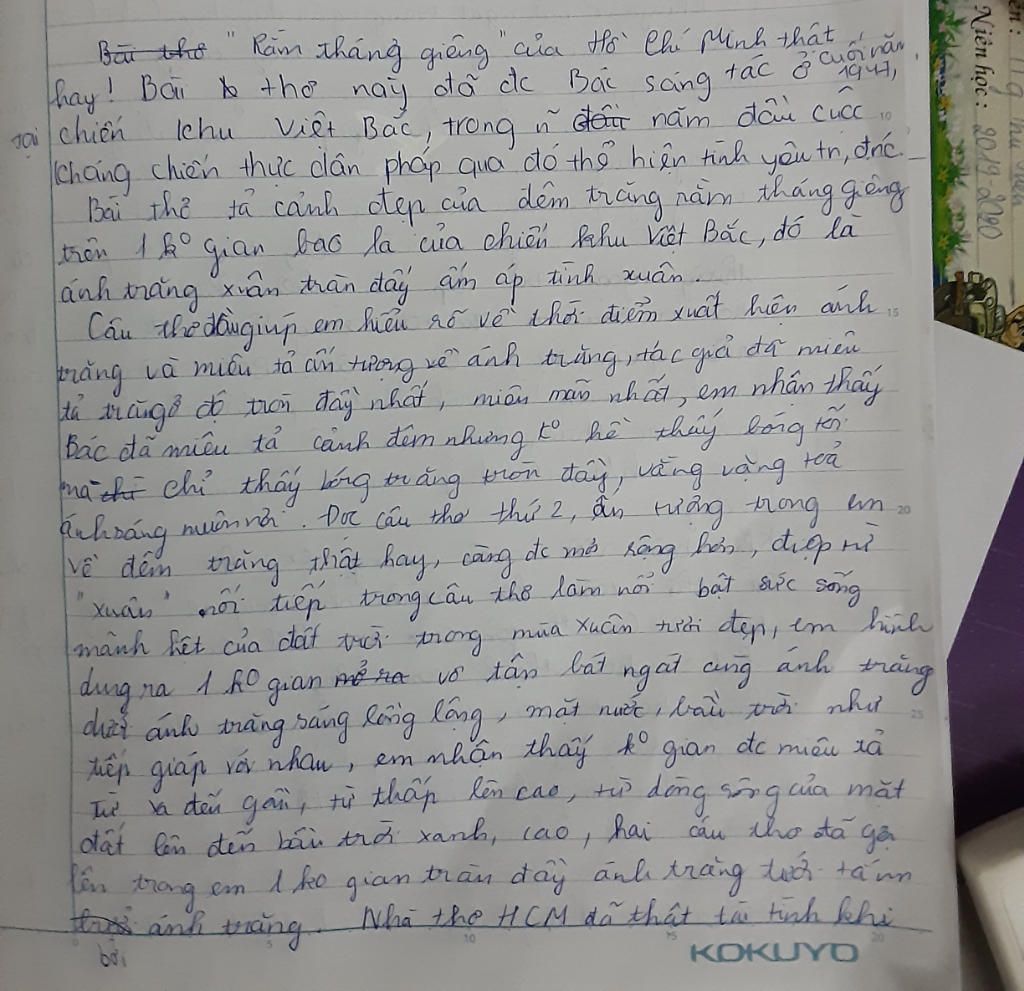 Bài thơ "Rằm tháng giêng" của Hồ Chí Minh thật
hay! Bài thơ này đã đc Bác sáng tác ở cuối năm 1947,
tại chiến khu Việt Bắc, trong ~ đầu năm đầu cuộc
kháng chiến thực dân pháp qua đó thể hiện tình yêu tn, đnc.
Bài thơ tả cảnh đẹp của đêm trăng rằm tháng giêng
trên 1 ko gian bao la của chiến khu Việt Bắc, đó là
ánh trăng xuân tràn đầy ấm áp tình xuân.
Câu thơ đầu giúp em hiểu rõ về thời điểm xuất hiện ánh
trăng và miêu tả ấn tượng về ánh trăng, tác giả đã miêu
tả trăng ở độ tròn đầy nhất, miên mãn nhất, em nhận thấy
Bác đã miêu tả cảnh đêm nhưng ko hề thấy bóng tối
mà chỉ chỉ thấy bóng trăng tròn đầy, vằng vặng toả
ánh sáng muôn nơi. Đọc câu thơ thứ 2, ấn tượng trong em
về đêm trăng thật hay, càng đc mở rộng hơn, điệp từ
"xuân" nối tiếp trong câu thơ làm nổi bật sức sống
mãnh liệt của đất trời trong mùa xuân tươi đẹp, em hình
dung ra 1 ko gian mở ra vô tận bát ngát cùng ánh trăng
dưới ánh trăng sáng lồng lộng, mặt nước, bầu trời như
tiếp giáp với nhau, em nhận thấy ko gian đc miêu tả
từ xa đến gần, từ thấp lên cao, từ dòng sông của mặt
đất lên đến bầu trời xanh, cao, hai câu thơ đã gợi
lên trong em 1 ko gian tràn đầy ánh trăng tưới tắm
bởi ánh trăng. Nhà thơ HCM đã thật tài tình khi
KOKUYO
Niên học: 2019-2020